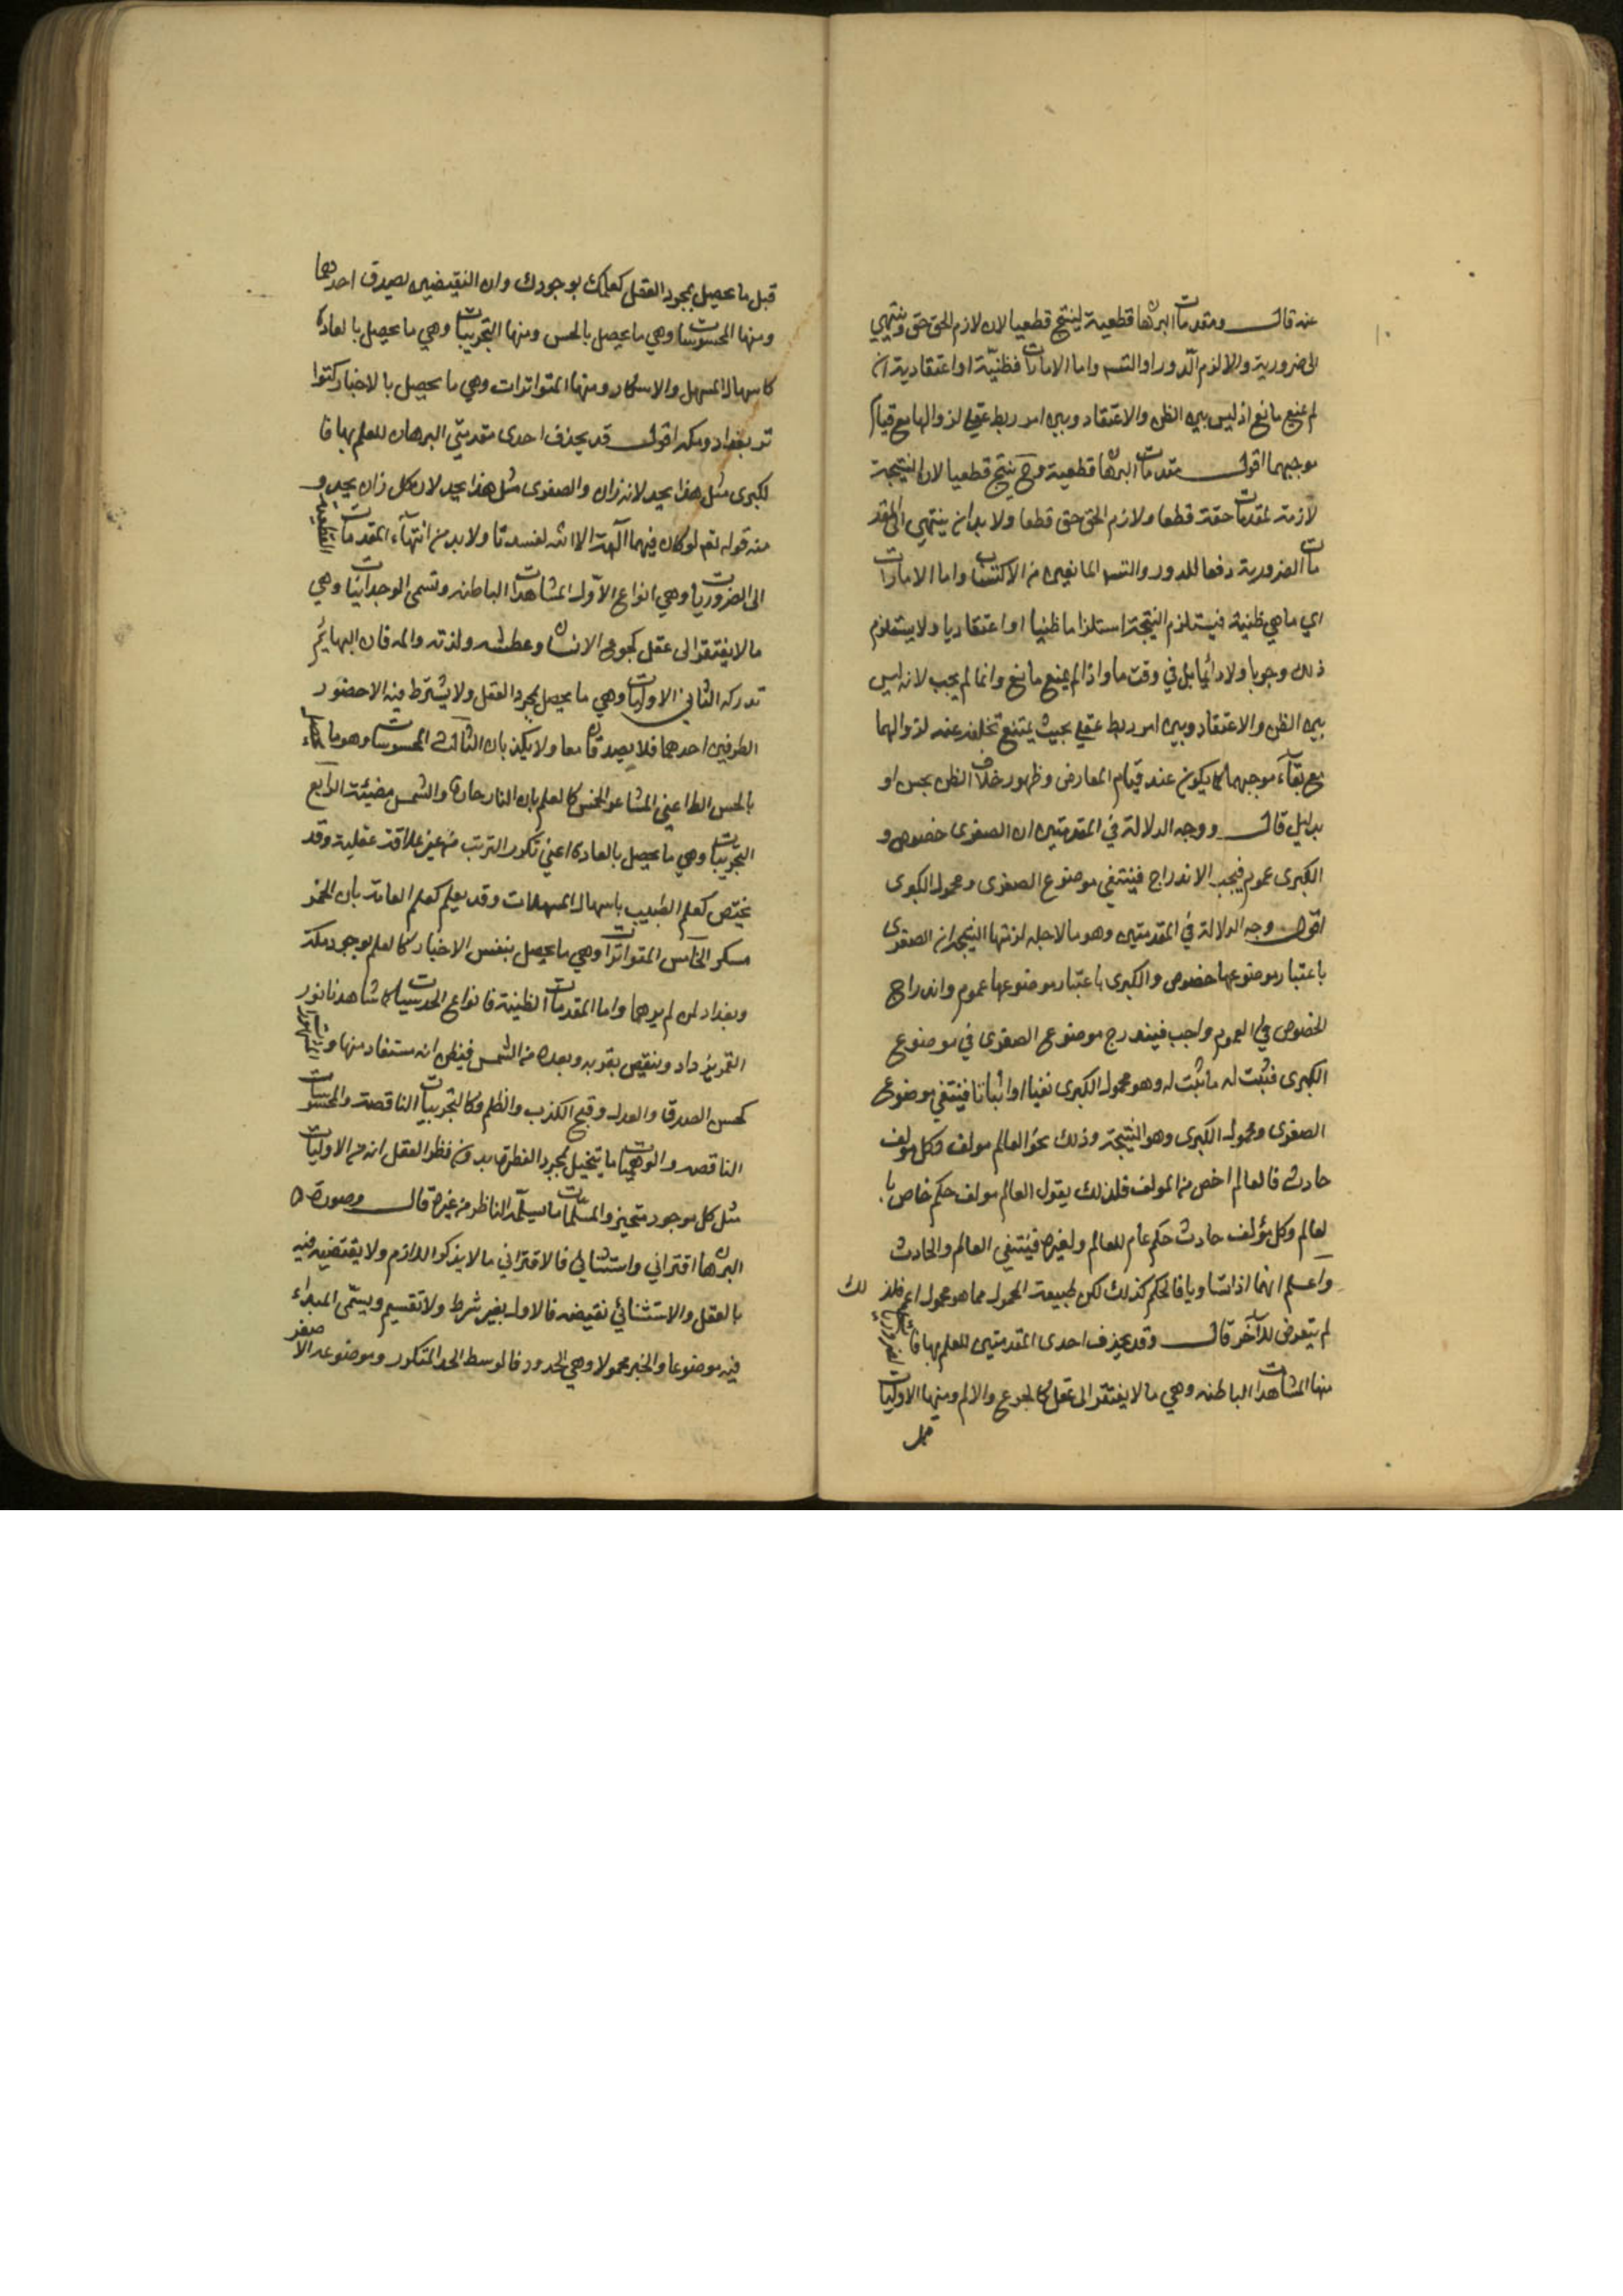 عنه قال ومقدمات البرهان قطعية لينتج قطعيا لان لازم الحق حق وينتهي
الى ضرورية والا لزم الدور او التسم واما الامارات فظنية او اعتقادية ان
لم يمنع مانع اذ ليس بين الظن والاعتقاد وبين امر ربط عقلي لزوالهما مع قيام
موجبهما اقول مقدمات البرهان قطعية وح ينتج قطعيا لان النتيجة
لازمة لمقدمات حقة قطعا ولازم الحق حق قطعا ولا بد ان ينتهي الى المقد
مات الضرورية دفعا للدور والتسم المانعين من الاكتساب واما الامارات
اي ما هي ظنية فيستلزم النتيجة استلزاما ظنيا او اعتقاديا ولا يستلزم
ذلك وجوبا ولا دائما بل في وقت ما واذا لم يمنع مانع وانما لم يجب لانه ليس
بين الظن والاعتقاد وبين امر ربط عقلي بحيث يمتنع تخلفه عنه لزوالهما
مع بقآء موجبهما كما يكون عند قيام المعارض وظهور خلاف الظن بحس او
بدليل قال ووجه الدلالة في المقدمتين ان الصغرى خصوص و
الكبرى عموم فيجب الاندراج فينتفي موضوع الصغرى ومحمول الكبرى
اقول وجه الدلالة في المقدمتين وهو ما لاجله لزمتها النتيجة ان الصغرى
باعتبار موضوعها خصوص والكبرى باعتبار موضوعها عموم واندراج
الخصوص في العموم واجب فيندرج موضوع الصغرى في موضوع
الكبرى فثبت له ما ثبت له وهو محمول الكبرى نفيا او اثباتا فينتفي موضوع
الصغرى ومحمول الكبرى وهو النتيجة وذلك نحو العالم مولف وكل مولف
حادث فالعالم اخص من المولف فلذلك يقول العالم مولف حكم خاص با
لعالم وكل مؤلف حادث حكم عام للعالم ولغيره فينتفي العالم والحادث
واعلم انهما اذا تساويا فالحكم كذلك لكن طبيعة المحمول مما هو محمول اعم فلذ لك
لم يتعرض للآخر قال وقد يحذف احدى المقدمتين للعلم بها
منها المشاهدات الباطنه وهي ما لا يفتقر الى عقل كالجوع والالم ومنها الاوليات
قبل
قبل ما يحصل بمجرد العقل كعلمك بوجودك وان النقيضين يصدق احدهما
ومنها المحسوسات وهي ما يحصل بالحس ومنها التجريبات وهي ما يحصل بالعادة
كاسهال المسهل والاسكار ومنها المتواترات وهي ما يحصل بالاخبار كتوا
تر بغداد ومكه اقول قد يحذف احدى مقدمتي البرهان للعلم بها فا
لكبرى مثل هذا يحد لانه زان والصغرى مثل هذا يحد لان كل زان يحد و
منه قوله تعم لو كان فيهما آلهة الا الله لفسدتا ولا بد من انتهآء المقدمات القطعية
الى الضروريات وهي انواع الاول المشاهدات الباطنه وتسمى الوجدانيات وهي
ما لا يفتقر الى عقل كجوع الانسان وعطشه ولذته والمه فان البهائم
تدركه الثاني الاوليات وهي ما يحصل بمجرد العقل ولا يشترط فيه الا حضور
الطرفين احدهما فلا يصدقان معا ولا يكذبان الثالث المحسوسات وهو ما
بالحس الظا اعني المشاعر الخمس كالعلم بان النار حارة والشمس مضيئة الرابع
التجريبات وهي ما يحصل بالعادة اعني تكرر الترتب من غير علاقة عقلية وقد
يختص كعلم الطبيب باسهال المسهلات وقد يعلم كعلم العامة بان الخمر
مسكر الخامس المتواترات وهي ما يحصل بنفس الاخبار كالعلم بوجود مكة
وبغداد لمن لم يرهما واما المقدمات الظنية فانواع الحدسيات كما شاهدنا نور
القمر يزداد وينقص بقربه وبعده من الشمس فيظن انه مستفاد منها والمشهورات
كحسن الصدق والعدل وقبح الكذب والظلم وكالتجريبات الناقصة والمحسوسات
الناقصه والوهميات ما يتخيل بمجرد الفطرة بدون نظر العقل انه من الاوليات
مثل كل موجود متحيز والمسلمات ما يسلمه الناظر من غيره قال وصورة
البرهان اقتراني واستثنائي فالاقتراني ما لا يذكر اللازم ولا نقيضه فيه
بالعقل والاستثنائي نقيضه فالاول بغير شرط ولا تقسيم ويسمى المبتداء
فيه موضوعا والخبر محمولا وهي الحدود فالوسط الحد المتكرر وموضوعه الاصغر